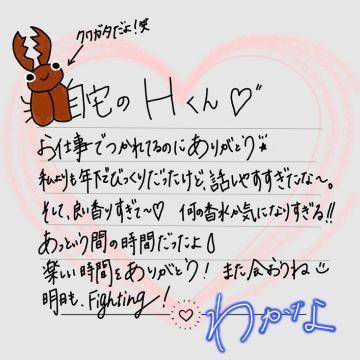 クワガタだよ！笑
自宅のHくん♡
お仕事でつかれてるのにありがとう
私よりも年下でびっくりだったけど、話しやすすぎたな〜。
そして、良い香りすぎて〜♡ 何の香水か気になりすぎる!!
あっという間の時間だったよ
楽しい時間をありがとう! また会おうね
明日も、Fighting!
わかな